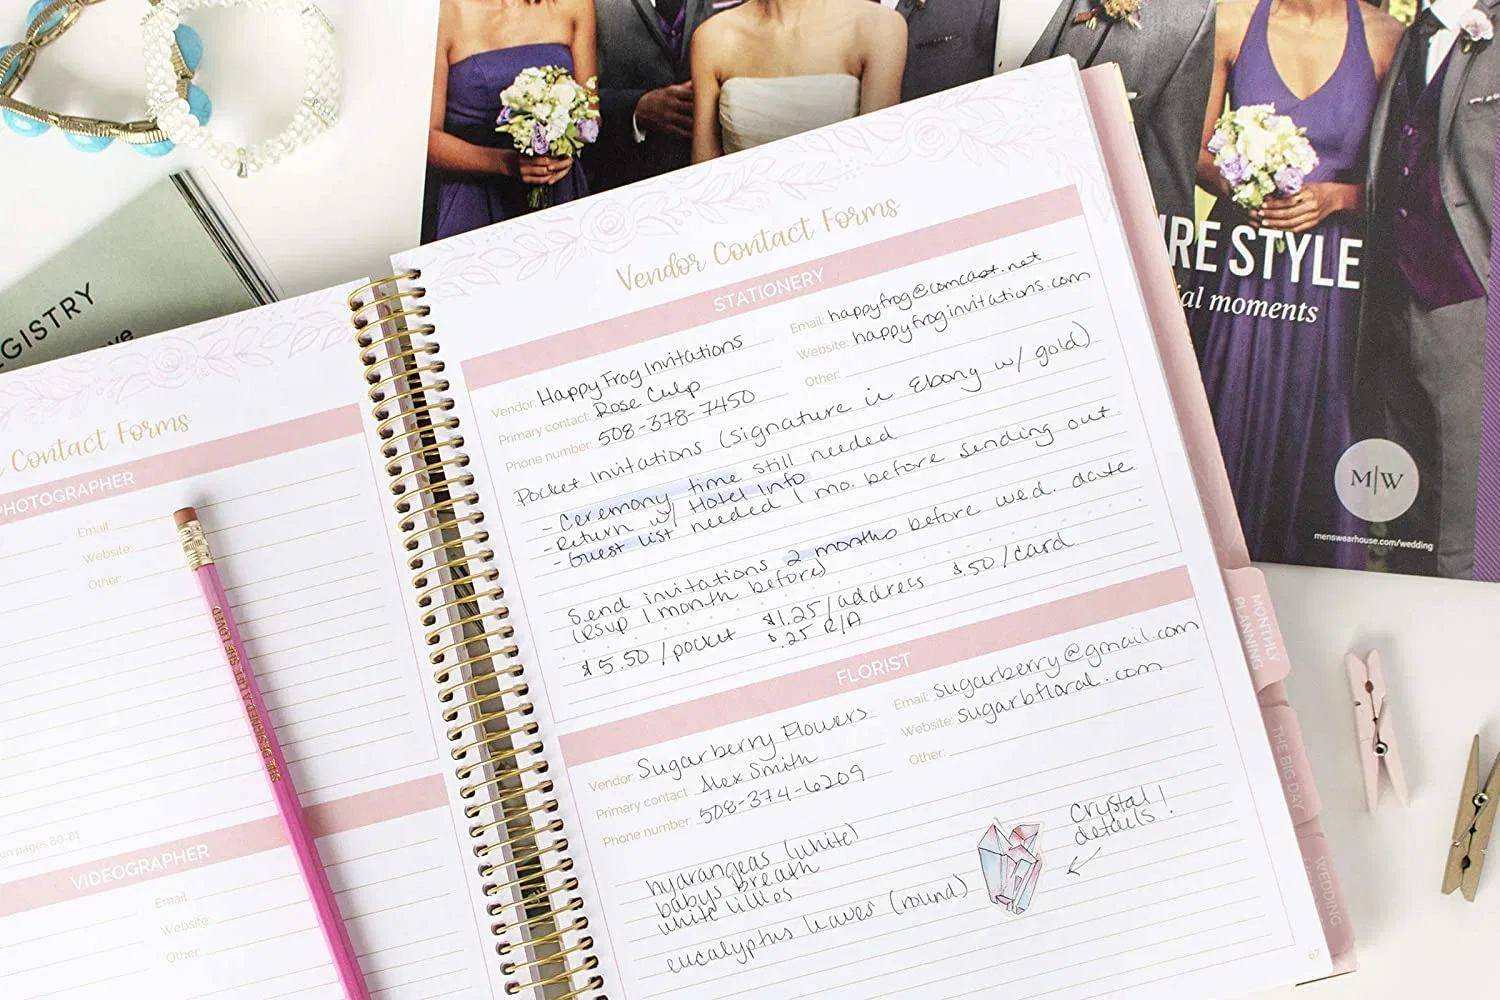 GISTRY
Contact Forms
PHOTOGRAPHER
Email:
Website:
Other:
on pages 80-81
VIDEOGRAPHER
Email:
Website:
Other:
Vendor Contact Forms
STATIONERY
Vendor: Happy Frog Invitations
Primary contact: Rose Culp
Phone number: 508-378-7450
Email: happyfrog@comcast.net
Website: happyfroginvitations.com
Other:
Pocket Invitations (signature in Ebony w/ gold)
- Ceremony time still needed
- Return w/ Hotel Info
- Guest list needed 1 mo. before sending out
Send invitations 2 months before wed. date
(rsvp 1 month before)
$5.50/pocket $1.25/address $.50/card
$.25 R/A
FLORIST
Vendor: Sugarberry Flowers
Primary contact: Alex Smith
Phone number: 508-374-6209
Email: sugarberry@gmail.com
Website: sugarbfloral.com
Other:
hydrangeas (white)
babys breath
white lilies
eucalyptus leaves (round)
Crystal
details!
67
MONTHLY
PLANNING
THE BIG DAY
WEDDING
IRE STYLE
ial moments
M|W
menswearhouse.com/wedding
SHE DREAMED A LIFE SHE LOVED